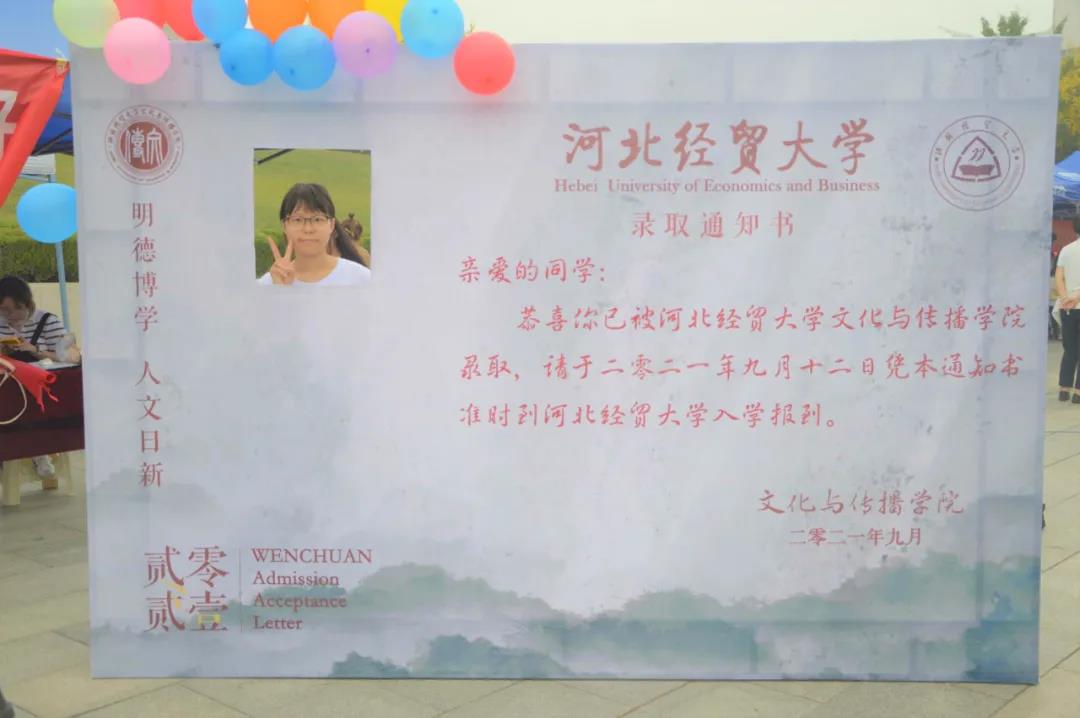 好
河北经贸大学
Hebei University of Economics and Business
录取通知书
亲爱的同学：
恭喜你已被河北经贸大学文化与传播学院
录取，请于二零二一年九月十二日凭本通知书
准时到河北经贸大学入学报到。
文化与传播学院
二零二一年九月
明德博学 人文日新
贰零
贰壹
WENCHUAN
Admission
Acceptance
Letter